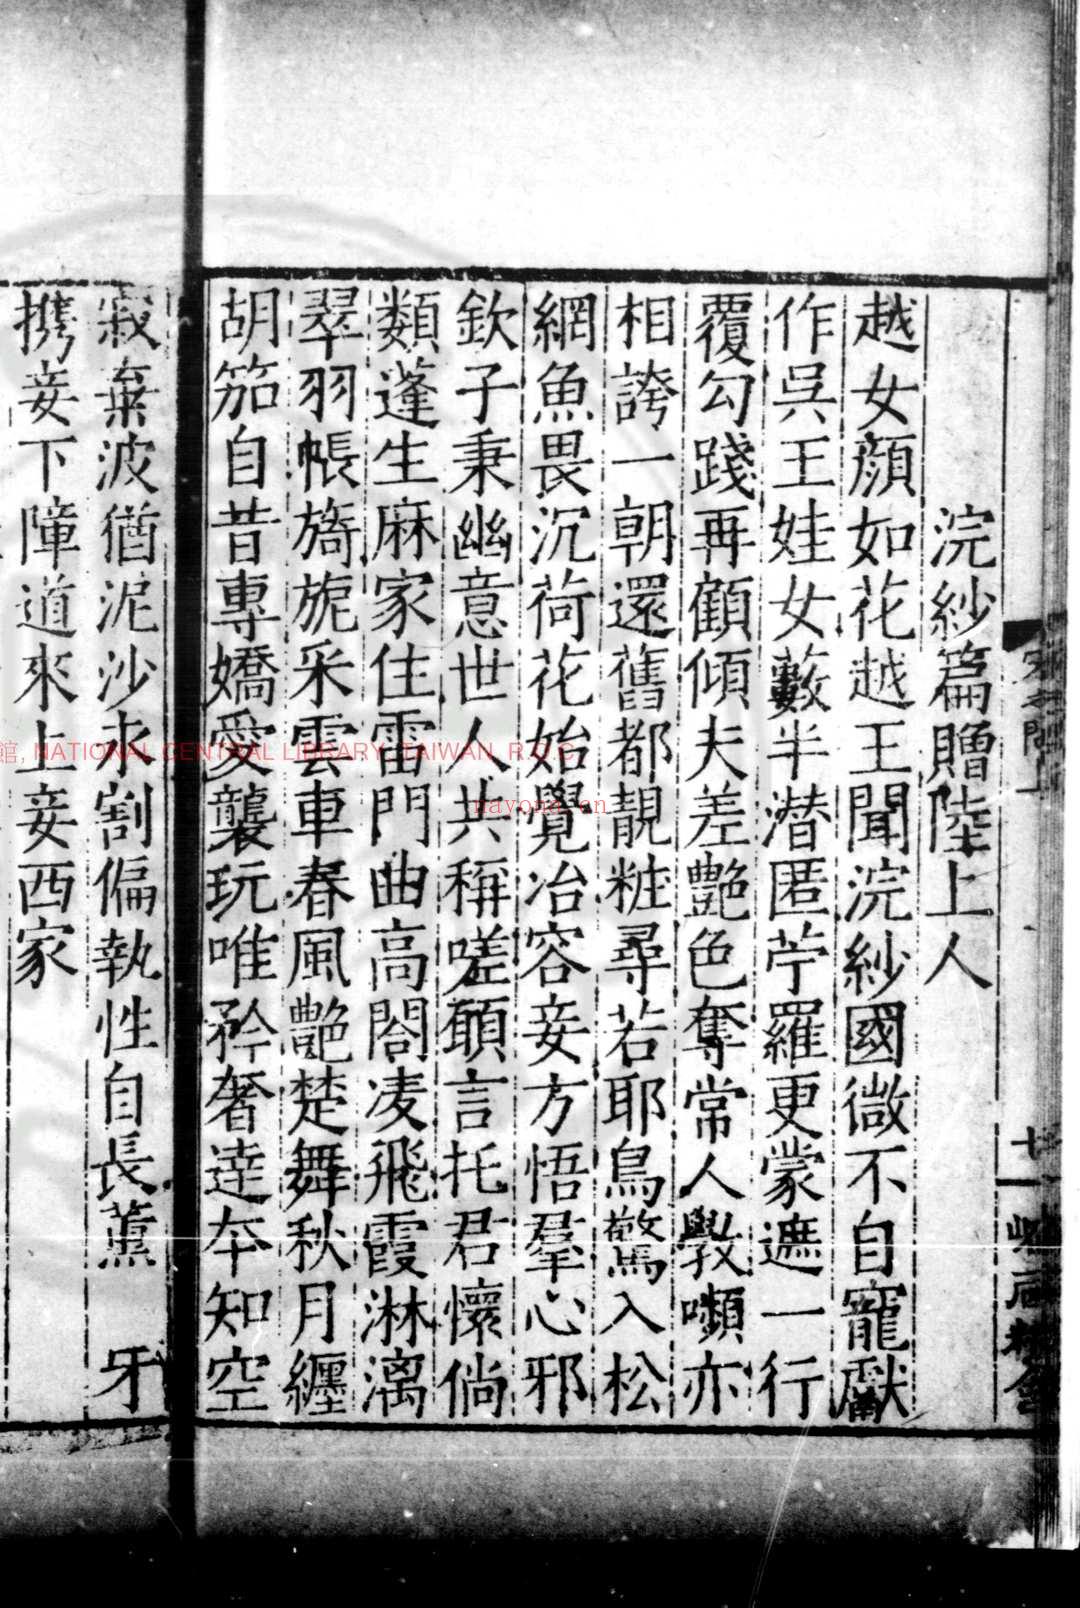 浣紗篇贈陸上人
越女顏如花越王聞浣紗國微不自寵獻
作吳王娃女藪半潛匿苧羅更蒙遮一行
覆勾踐再顧傾夫差艶色奪常人斆嚬亦
相誇一朝還舊都靚粧尋若耶鳥驚入松
網魚畏沉荷花始覺冶容妾方悟羣心邪
欽子秉幽意世人共稱嗟願言托君懷倘
類蓬生麻家住雷門曲高閣凌飛霞淋漓
翠羽帳旖旎采雲車春風艶楚舞秋月纏
胡笳自昔專嬌愛襲玩唯矜奢達本知空
寂棄波猶泥沙永割偏執性自長薰 牙
携妾下障道來上妾西家
NATIONAL CENTRAL LIBRARY, TAIWAN, R.O.C
nayona.cn